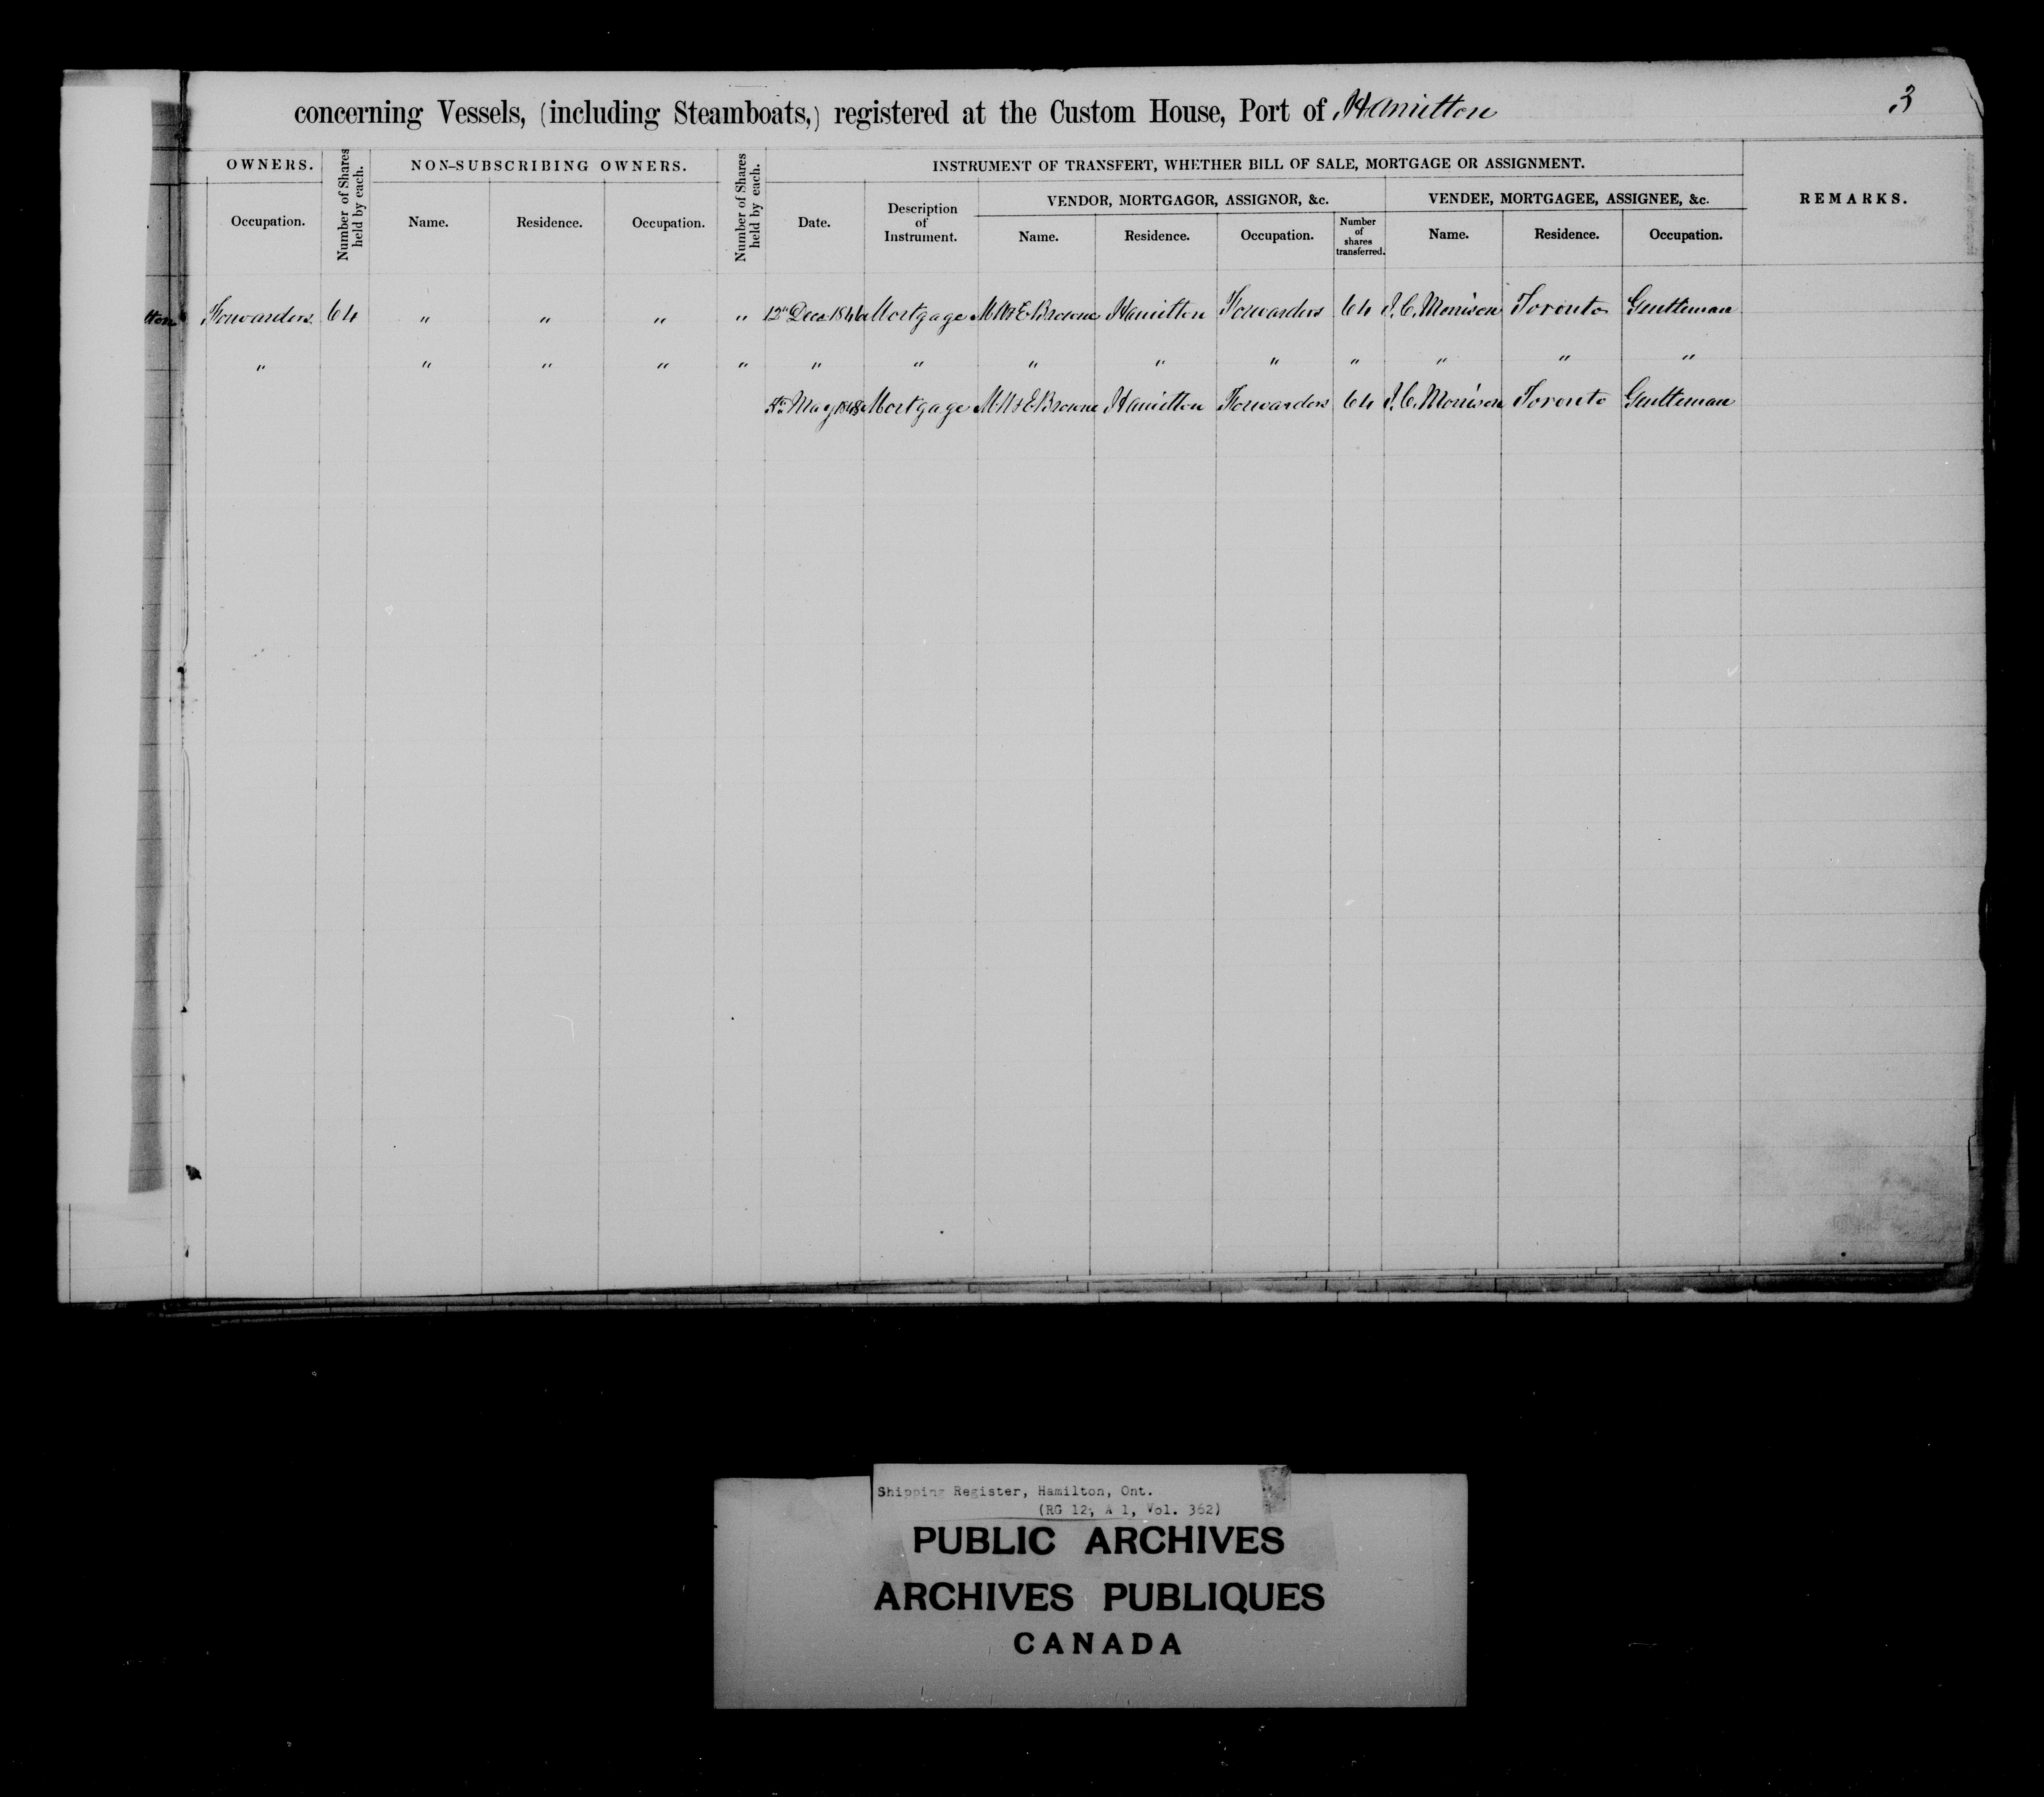 concerning Vessels, (including Steamboats,) registered at the Custom House, Port of Hamilton 3
OWNERS. Number of Shares held by each. NON-SUBSCRIBING OWNERS. Number of Shares held by each. INSTRUMENT OF TRANSFERT, WHETHER BILL OF SALE, MORTGAGE OR ASSIGNMENT. REMARKS.
VENDOR, MORTGAGOR, ASSIGNOR, &c. VENDEE, MORTGAGEE, ASSIGNEE, &c.
Occupation. Name. Residence. Occupation. Date. Description of Instrument. Name. Residence. Occupation. Number of shares transferred. Name. Residence. Occupation.
lton Forwarders 64 " " " " 12th Dec 1846 Mortgage M W & E Browne Hamilton Forwarders 64 J. C. Morrison Toronto Gentleman
" " " " " " " " " " " " " "
May 1848 Mortgage M W & E Browne Hamilton Forwarders 64 J. C. Morrison Toronto Gentleman
Shipping Register, Hamilton, Ont.
(RG 12, A 1, Vol. 362)
PUBLIC ARCHIVES
ARCHIVES PUBLIQUES
CANADA